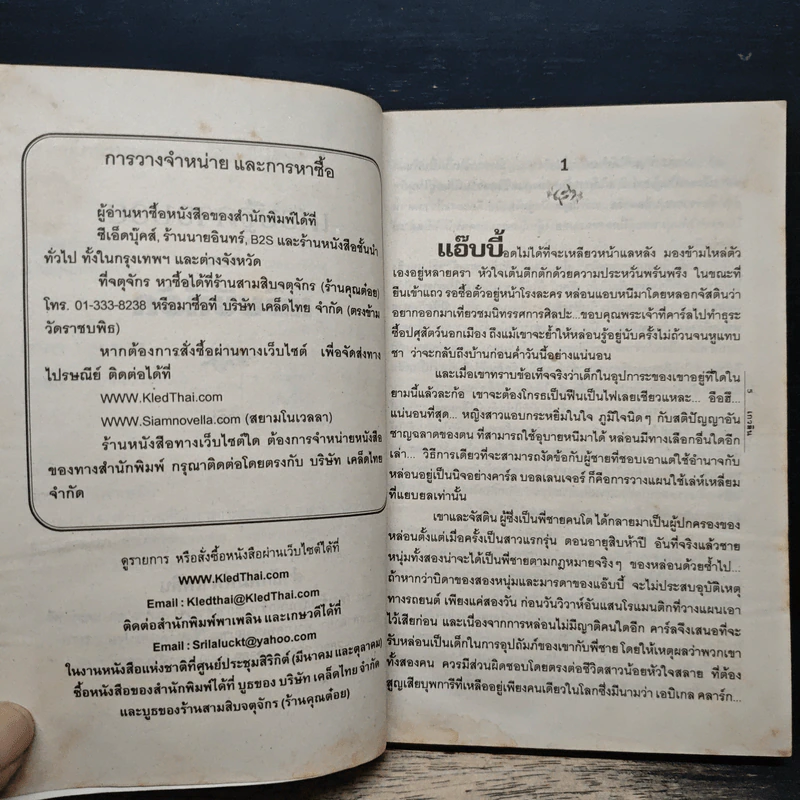 การวางจำหน่าย และการหาซื้อ
ผู้อ่านหาซื้อหนังสือของสำนักพิมพ์ได้ที่
ซีเอ็ดบุ๊คส์, ร้านนายอินทร์, B2S และร้านหนังสือชั้นนำ
ทั่วไป ทั้งในกรุงเทพฯ และต่างจังหวัด
ที่จตุจักร หาซื้อได้ที่ร้านสามสิบจตุจักร (ร้านคุณต๋อย)
โทร. 01-333-8238 หรือมาซื้อที่ บริษัท เคล็ดไทย จำกัด (ตรงข้าม
วัดราชบพิธ)
หากต้องการสั่งซื้อผ่านทางเว็บไซต์ เพื่อจัดส่งทาง
ไปรษณีย์ ติดต่อได้ที่
WWW.KledThai.com
WWW.Siamnovella.com (สยามโนเวลลา)
ร้านหนังสือทางเว็บไซต์ใด ต้องการจำหน่ายหนังสือ
ของทางสำนักพิมพ์ กรุณาติดต่อโดยตรงกับ บริษัท เคล็ดไทย
จำกัด
ดูรายการ หรือสั่งซื้อหนังสือผ่านเว็บไซต์ได้ที่
WWW.KledThai.com
Email : Kledthai@KledThai.com
ติดต่อสำนักพิมพ์พาเพลิน และเกษวดีได้ที่
Email : Srilaluckt@yahoo.com
ในงานหนังสือแห่งชาติที่ศูนย์ประชุมสิริกิต์ (มีนาคม และตุลาคม)
ซื้อหนังสือของสำนักพิมพ์ได้ที่ บูธของ บริษัท เคล็ดไทย จำกัด
และบูธของร้านสามสิบจตุจักร (ร้านคุณต๋อย)
1
แอ๊บบี้อดไม่ได้ที่จะเหลียวหน้าแลหลัง มองข้ามไหล่ตัว
เองอยู่หลายครา หัวใจเต้นตึกตักด้วยความประหวั่นพรั่นพรึง ในขณะที่
ยืนเข้าแถว รอซื้อตั๋วอยู่หน้าโรงละคร หล่อนแอบหนีมาโดยหลอกจัสตินว่า
อยากออกมาเที่ยวชมนิทรรศการศิลปะ...ขอบคุณพระเจ้าที่คาร์ลไปทำธุระ
ซื้อปศุสัตว์นอกเมือง ถึงแม้เขาจะย้ำให้หล่อนรู้อยู่นับครั้งไม่ถ้วนจนหูแทบ
ชา ว่าจะกลับถึงบ้านก่อนค่ำวันนี้อย่างแน่นอน
และเมื่อเขาทราบข้อเท็จจริงว่าเด็กในอุปการะของเขาอยู่ที่ใดใน
ยามนี้แล้วละก้อ เขาจะต้องโกรธเป็นฟืนเป็นไฟเลยเชียวแหละ... อือฮึ...
แน่นอนที่สุด... หญิงสาวแอบกระหยิ่มในใจ ภูมิใจนิดๆ กับสติปัญญาอัน
ชาญฉลาดของตน ที่สามารถใช้อุบายหนีมาได้ หล่อนมีทางเลือกอื่นใดอีก
เล่า... วิธีการเดียวที่จะสามารถงัดข้อกับผู้ชายที่ชอบเอาแต่ใช้อำนาจกับ
หล่อนอยู่เป็นนิจอย่างคาร์ล บอลเลนเจอร์ ก็คือการวางแผนใช้เล่ห์เหลี่ยม
ที่แยบยลเท่านั้น
เขาและจัสติน ผู้ซึ่งเป็นพี่ชายคนโต ได้กลายมาเป็นผู้ปกครองของ
หล่อนตั้งแต่เมื่อครั้งเป็นสาวแรกรุ่น ตอนอายุสิบห้าปี อันที่จริงแล้วชาย
หนุ่มทั้งสองน่าจะได้เป็นพี่ชายตามกฎหมายจริงๆ ของหล่อนด้วยซ้ำไป...
ถ้าหากว่าบิดาของสองหนุ่มและมารดาของแอ๊บบี้ จะไม่ประสบอุบัติเหตุ
ทางรถยนต์ เพียงแค่สองวัน ก่อนวันวิวาห์อันแสนโรแมนติกที่วางแผนเอา
ไว้เสียก่อน และเนื่องจากการหล่อนไม่มีญาติคนใดอีก คาร์ลจึงเสนอที่จะ
รับหล่อนเป็นเด็กในการอุปถัมภ์ของเขากับพี่ชาย โดยให้เหตุผลว่าพวกเขา
ทั้งสองคน ควรมีส่วนผิดชอบโดยตรงต่อชีวิตสาวน้อยหัวใจสลาย ที่ต้อง
สูญเสียบุพการีที่เหลืออยู่เพียงคนเดียวในโลกซึ่งมีนามว่า เอบิเกล คลาร์ก...
5
เกวลิน